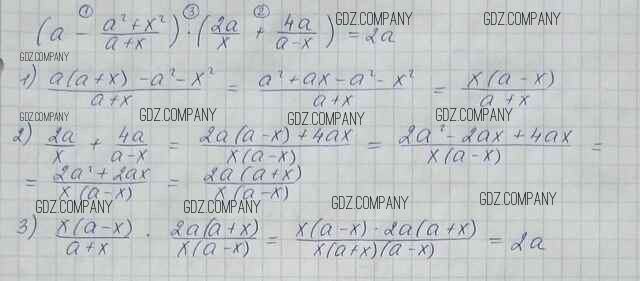 ① ③ ②
(a - (a² + x²)/(a + x)) · (2a/x + 4a/(a - x)) = 2a
GDZ.COMPANY GDZ.COMPANY
GDZ.COMPANY
1) (a(a + x) - a² - x²)/(a + x) = (a² + ax - a² - x²)/(a + x) = x(a - x)/(a + x)
GDZ.COMPANY GDZ.COMPANY GDZ.COMPANY
2) 2a/x + 4a/(a - x) = (2a(a - x) + 4ax)/(x(a - x)) = (2a² - 2ax + 4ax)/(x(a - x)) =
= (2a² + 2ax)/(x(a - x)) = 2a(a + x)/(x(a - x))
GDZ.COMPANY GDZ.COMPANY GDZ.COMPANY GDZ.COMPANY
3) x(a - x)/(a + x) · 2a(a + x)/(x(a - x)) = (x(a - x) · 2a(a + x))/(x(a + x)(a - x)) = 2a